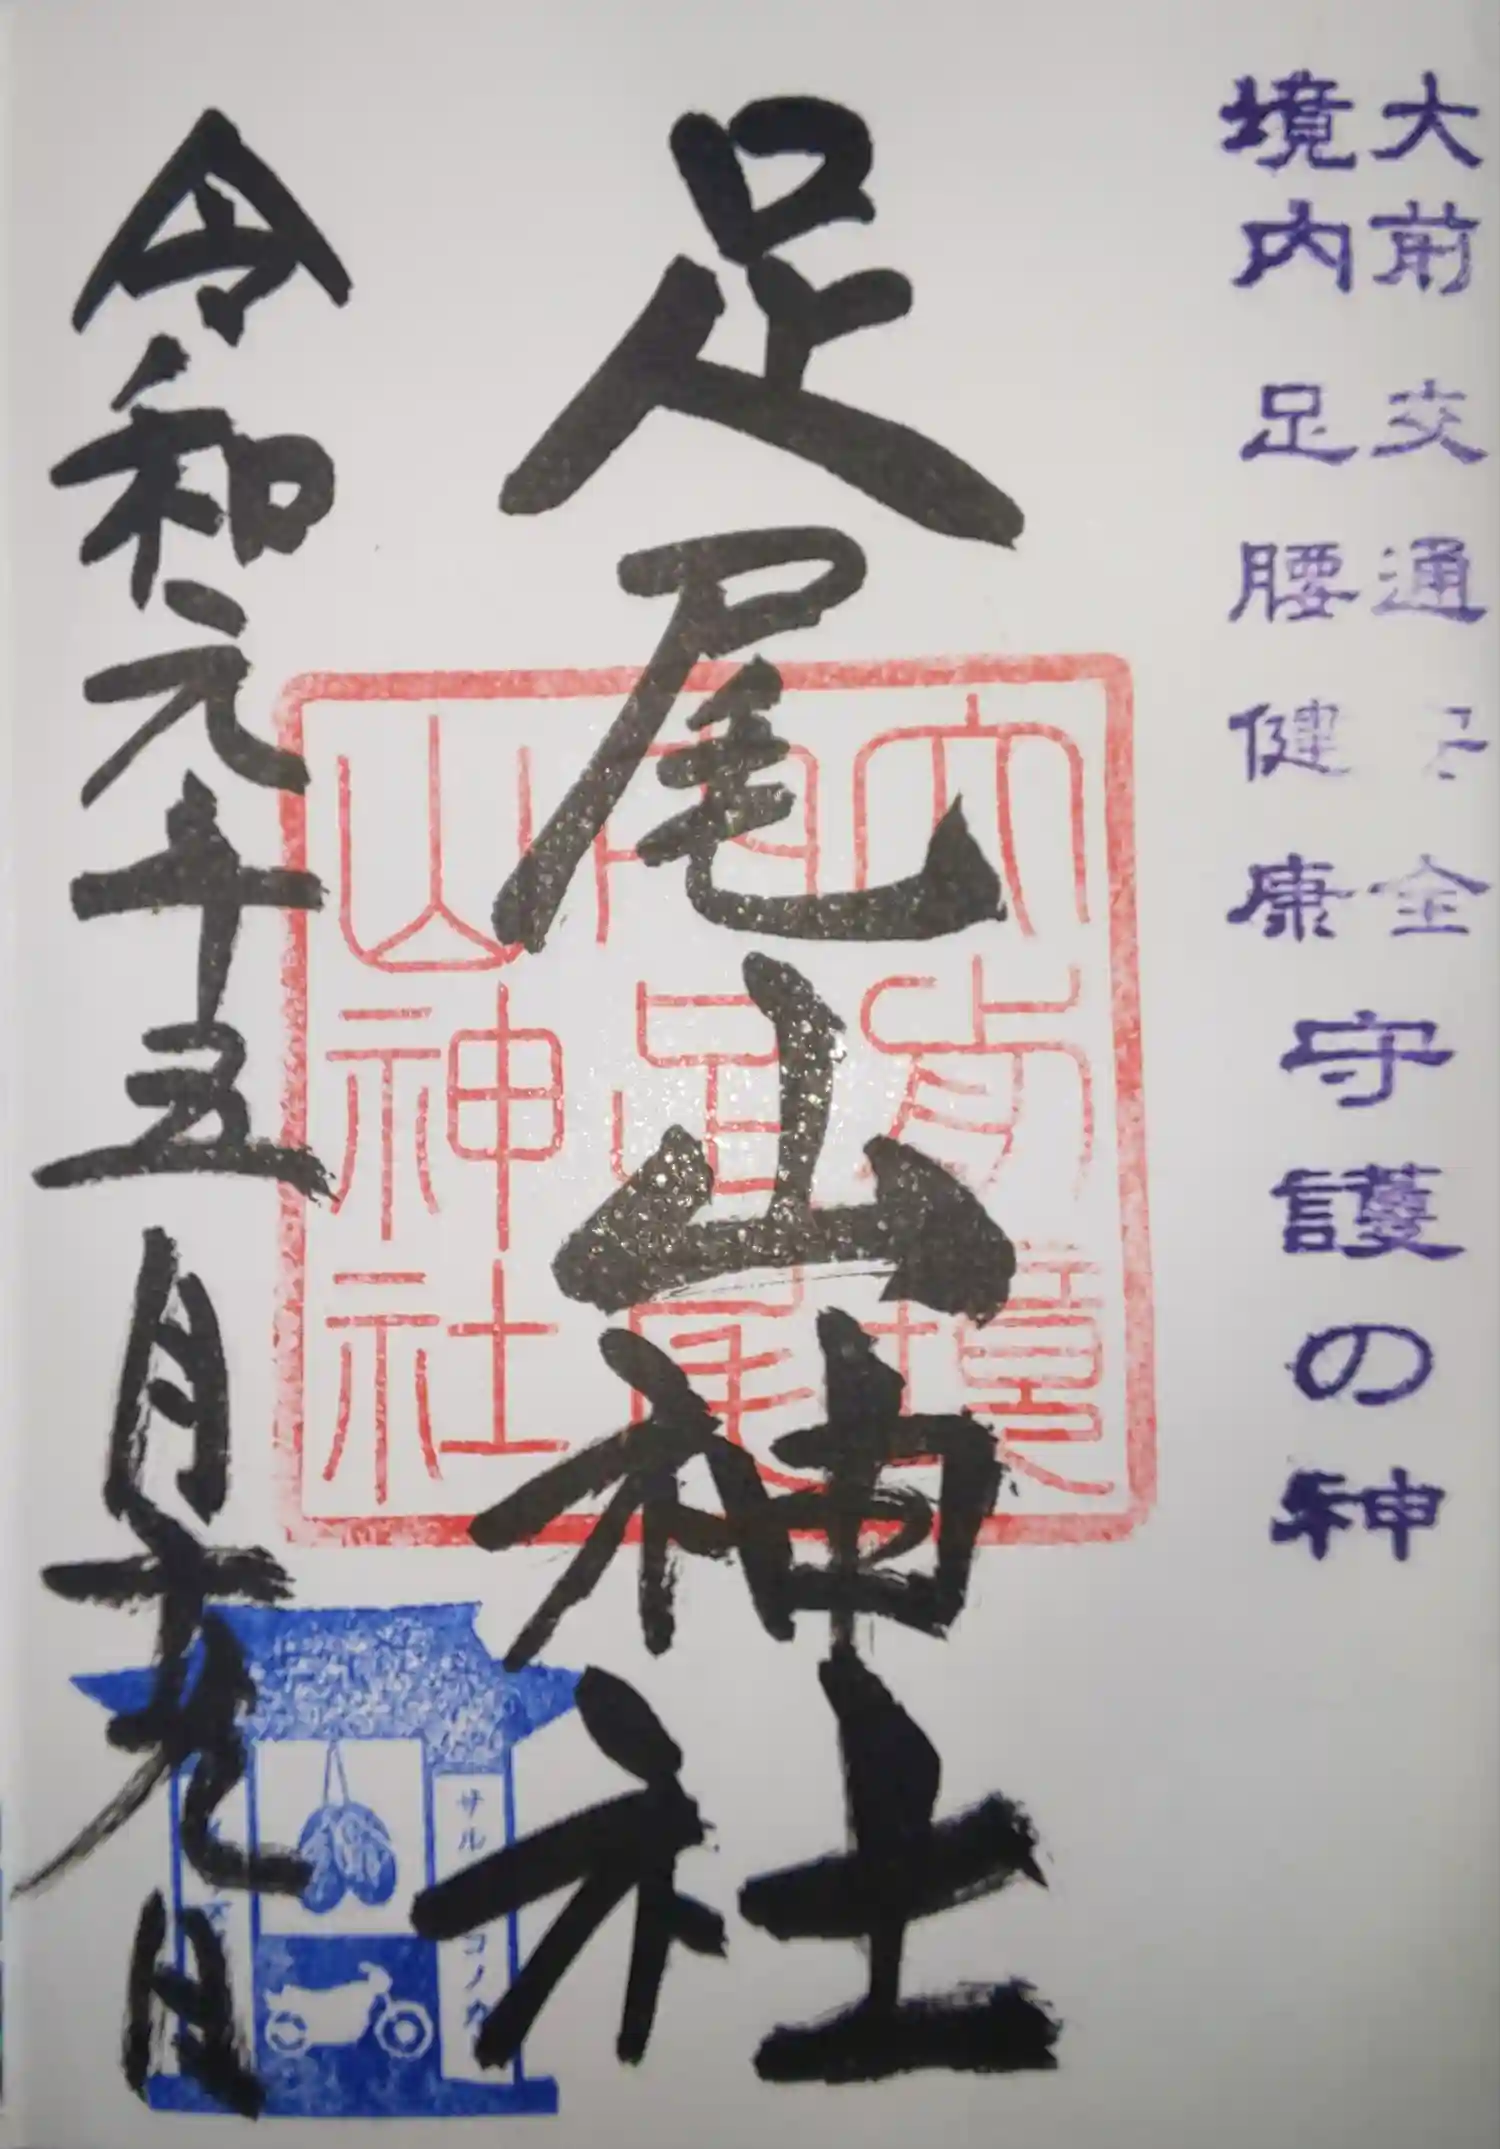 大前 交通 全
境内 足腰健康
守護の神
足尾山神社
大前境
内足尾
山神社
令和元年五月十九日
サル コノカ